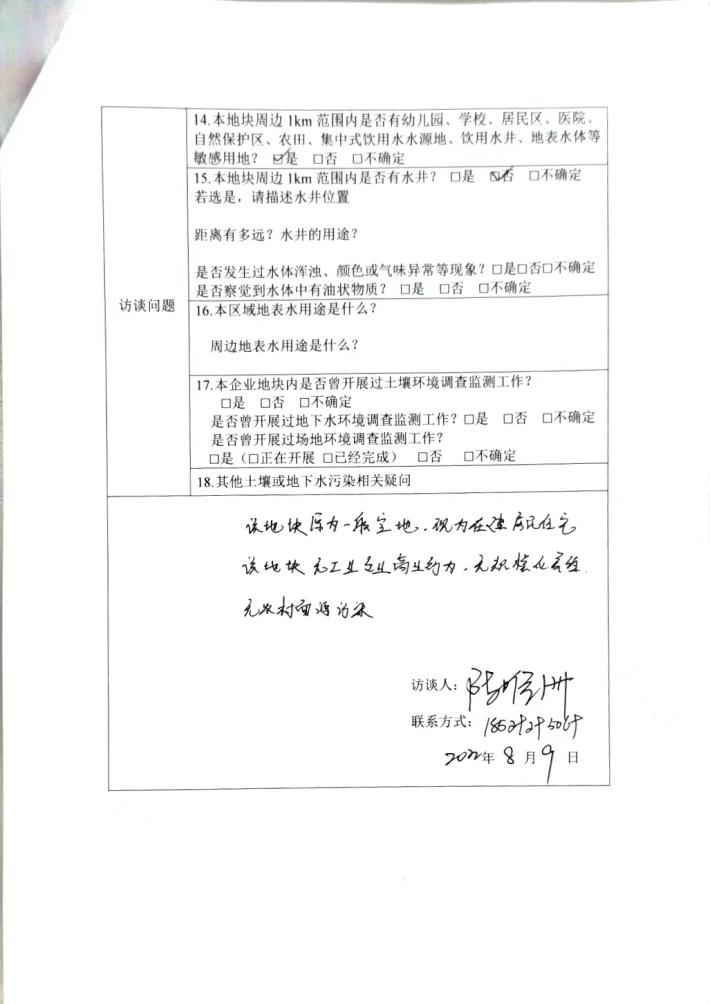 14.本地块周边 1km 范围内是否有幼儿园、学校、居民区、医院、
自然保护区、农田、集中式饮用水水源地、饮用水井、地表水体等
敏感用地? ☑是 □否 □不确定
15.本地块周边 1km 范围内是否有水井? □是 ☑否 □不确定
若选是,请描述水井位置
距离有多远?水井的用途?
是否发生过水体浑浊、颜色或气味异常等现象?□是□否□不确定
是否察觉到水体中有油状物质? □是 □否 □不确定
访谈问题
16.本区域地表水用途是什么?
周边地表水用途是什么?
17.本企业地块内是否曾开展过土壤环境调查监测工作?
□是 □否 □不确定
是否曾开展过地下水环境调查监测工作?□是 □否 □不确定
是否曾开展过场地环境调查监测工作?
□是(□正在开展 □已经完成) □否 □不确定
18.其他土壤或地下水污染相关疑问
该地块原为一般空地,现为在建居民住宅
该地块无工业企业 无规模化
无农村面源污染
访谈人:
联系方式:
2022年 8 月 9 日